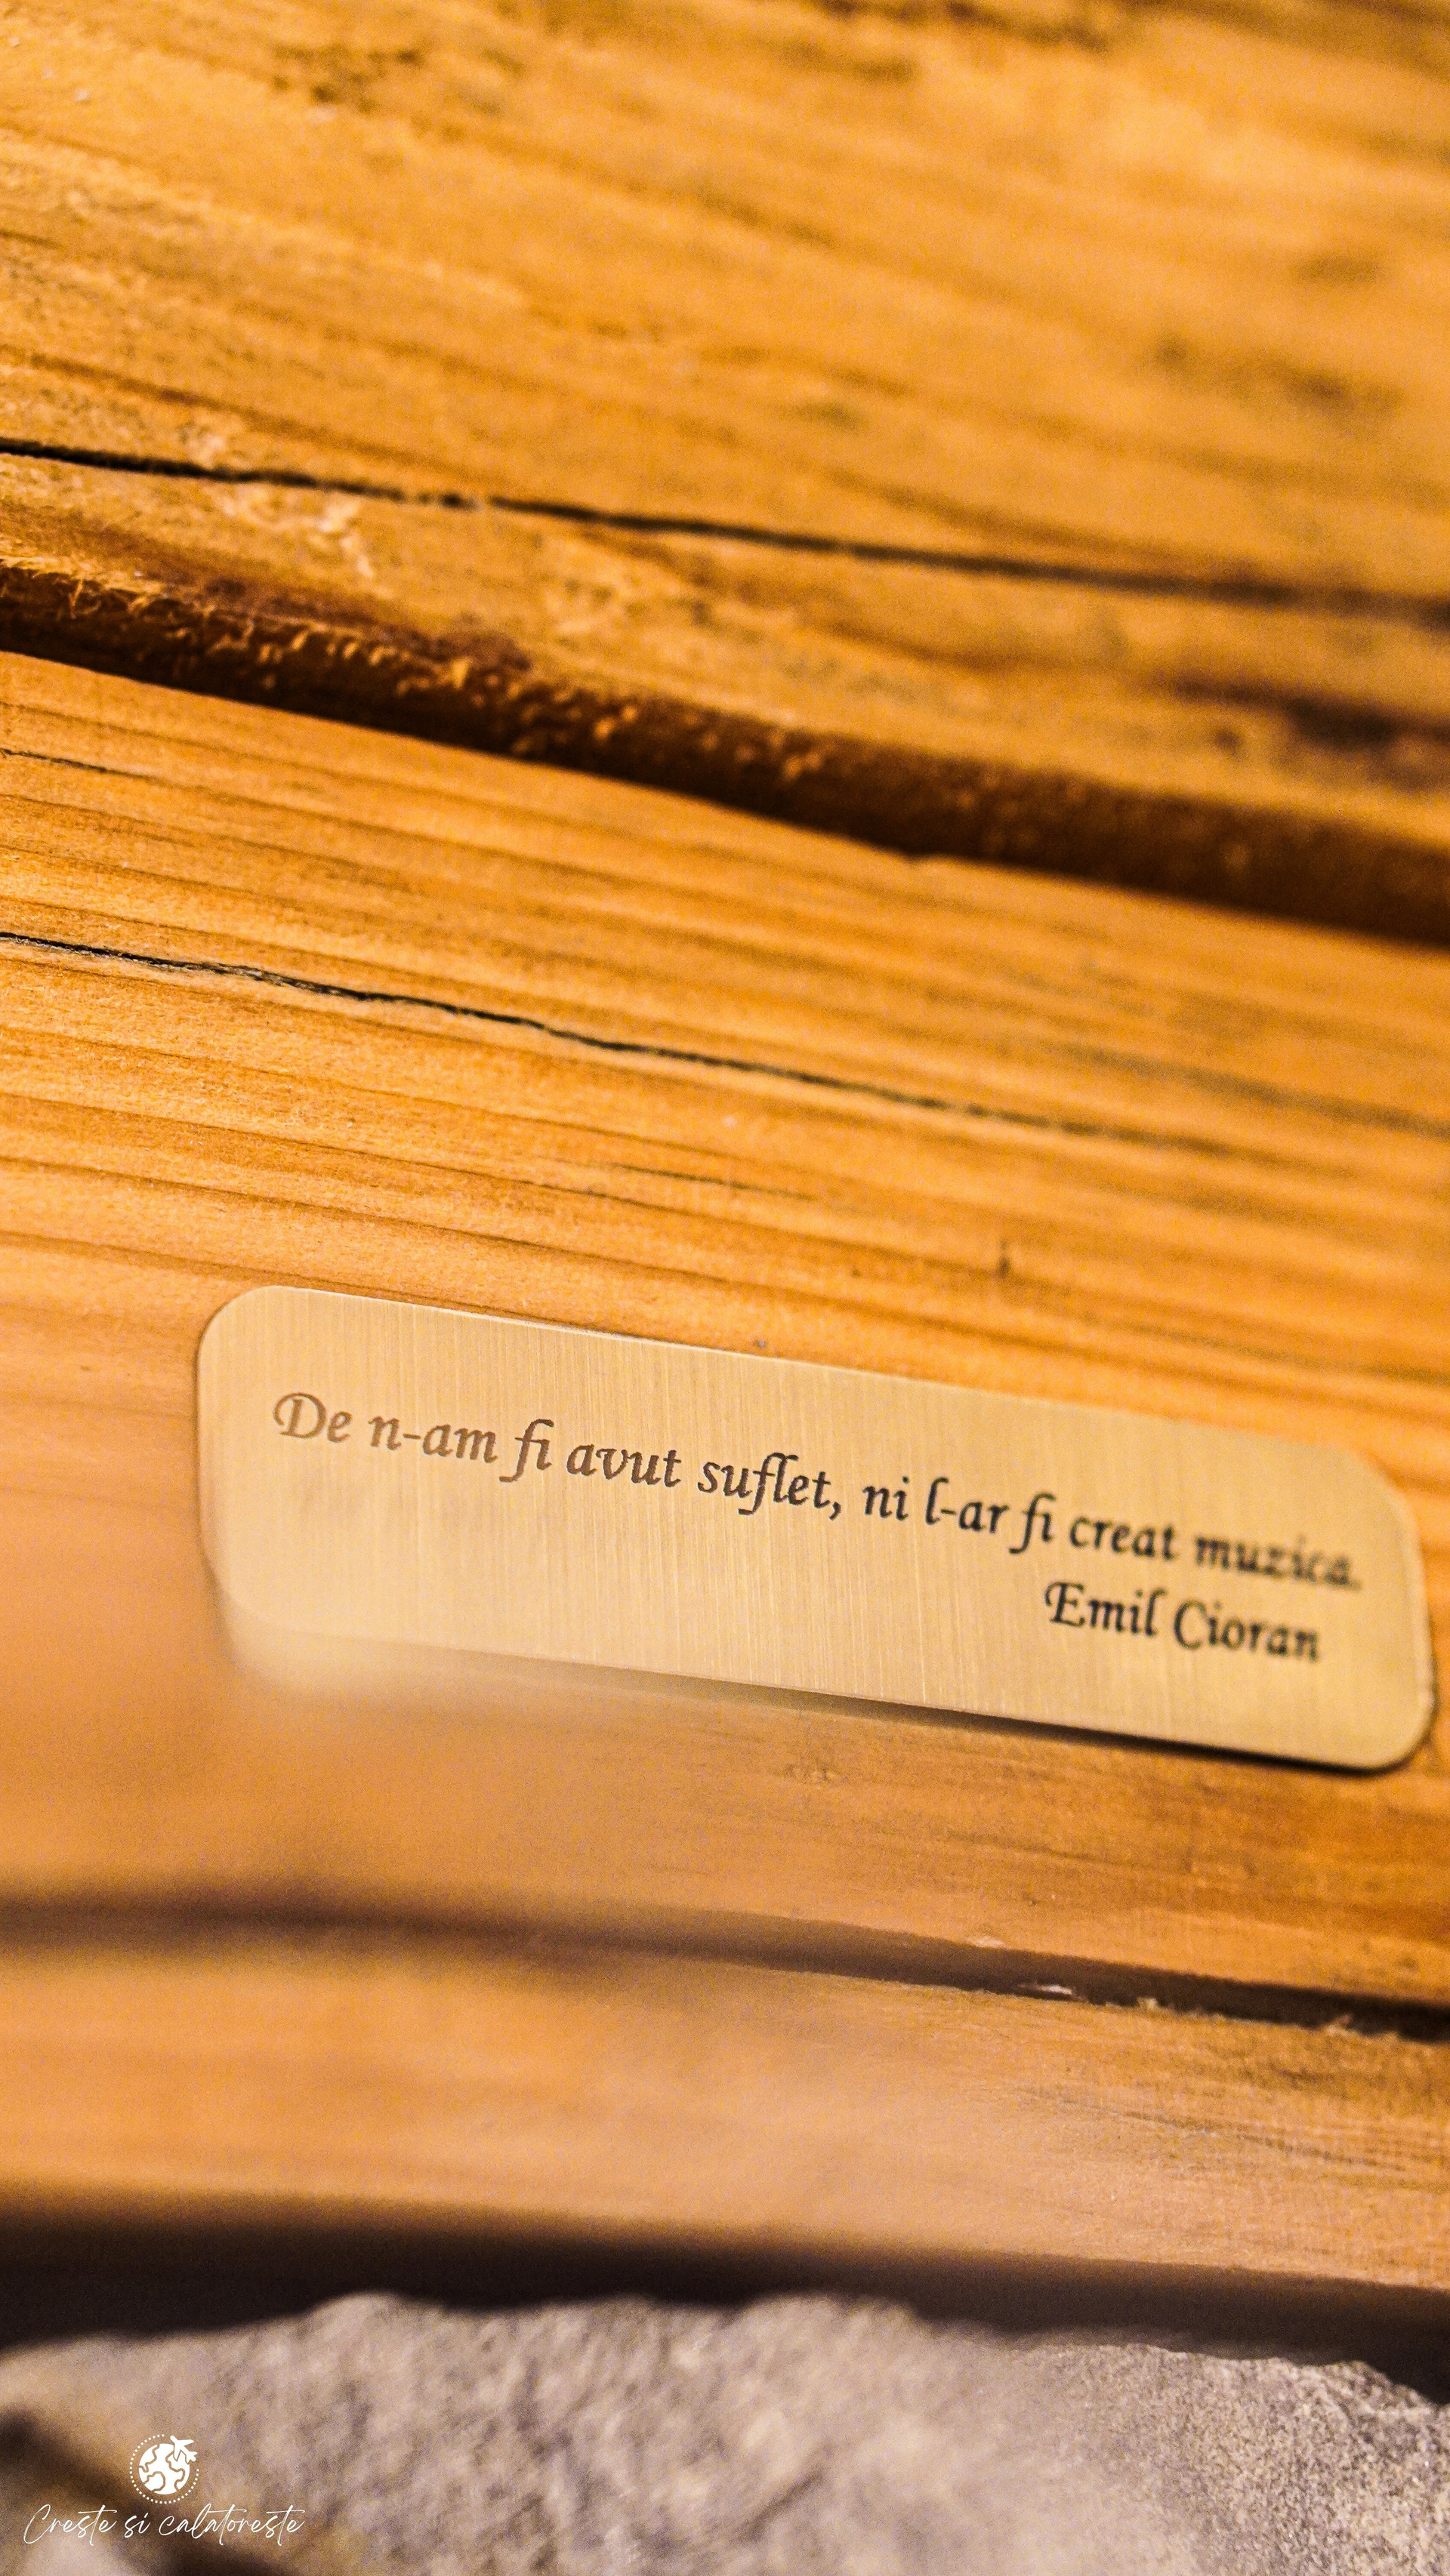 De n-am fi avut suflet, ni l-ar fi creat muzica.
Emil Cioran
Creste si calatoreste